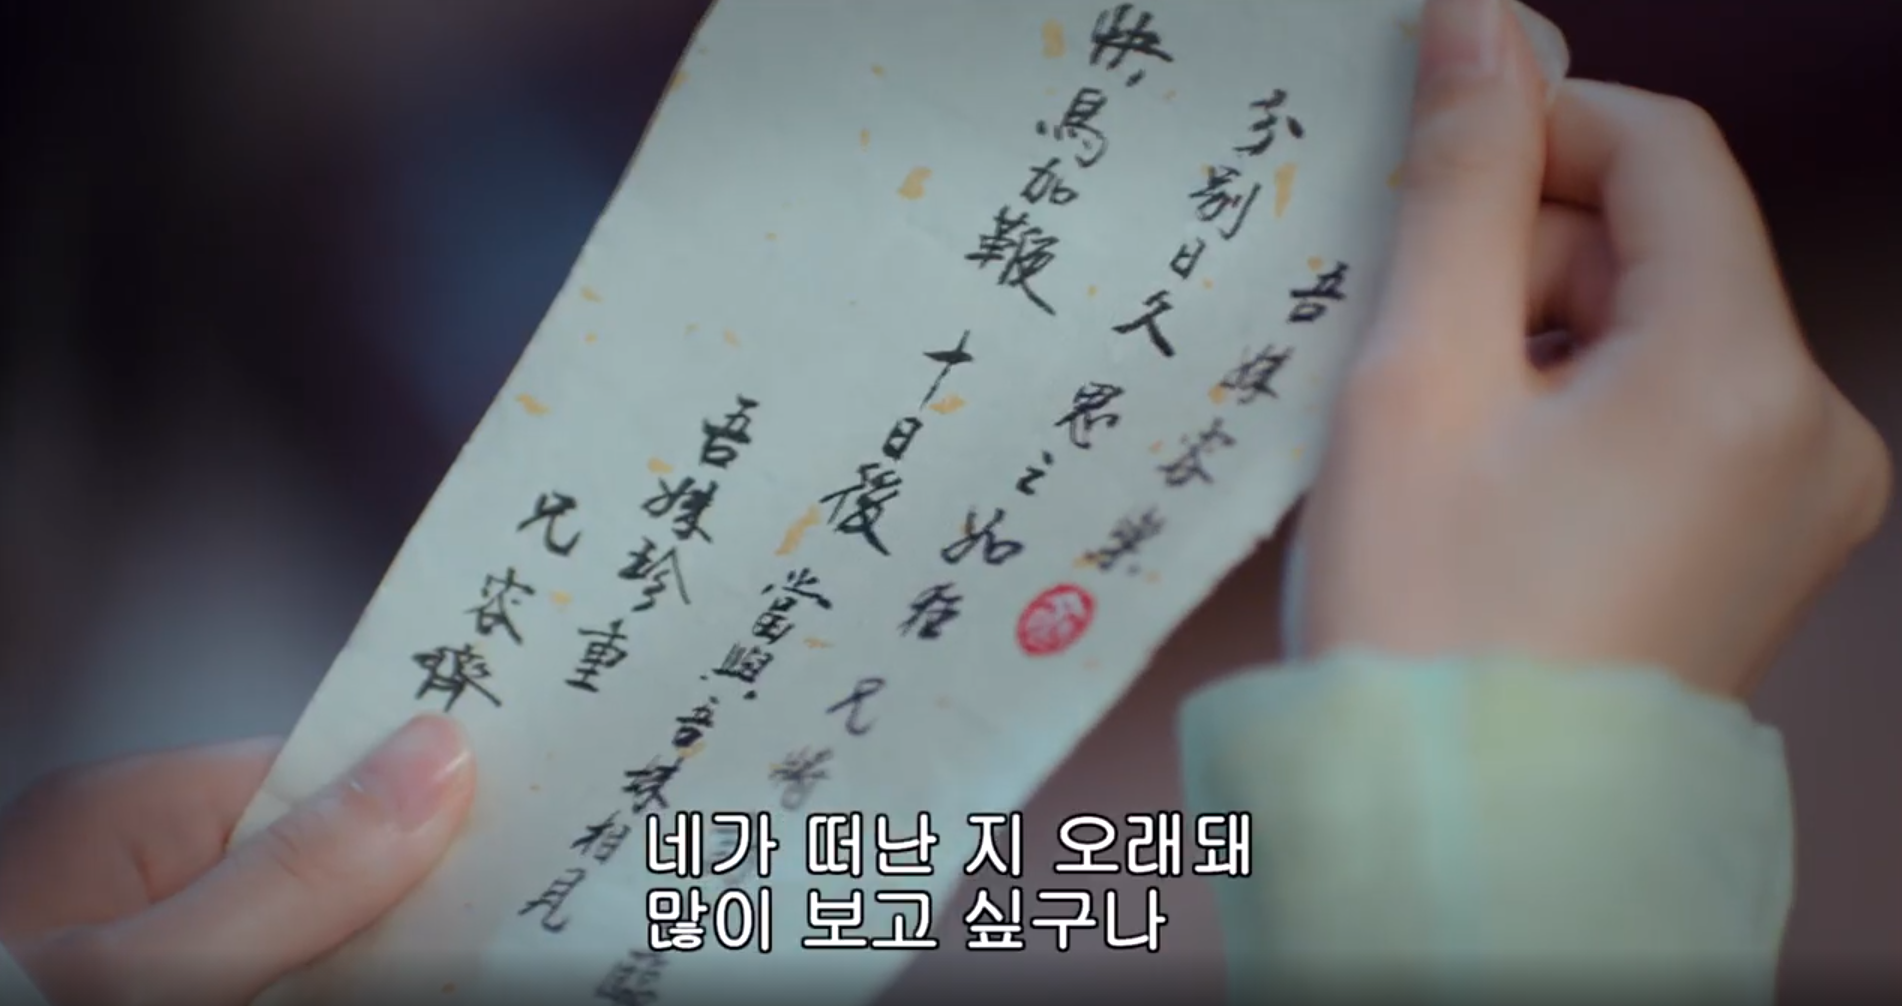 吾妹容
分別日久 思之如狂 兄將
快馬加鞭 十日後 當與吾妹相見
吾妹珍重
兄容齊
네가 떠난 지 오래돼
많이 보고 싶구나